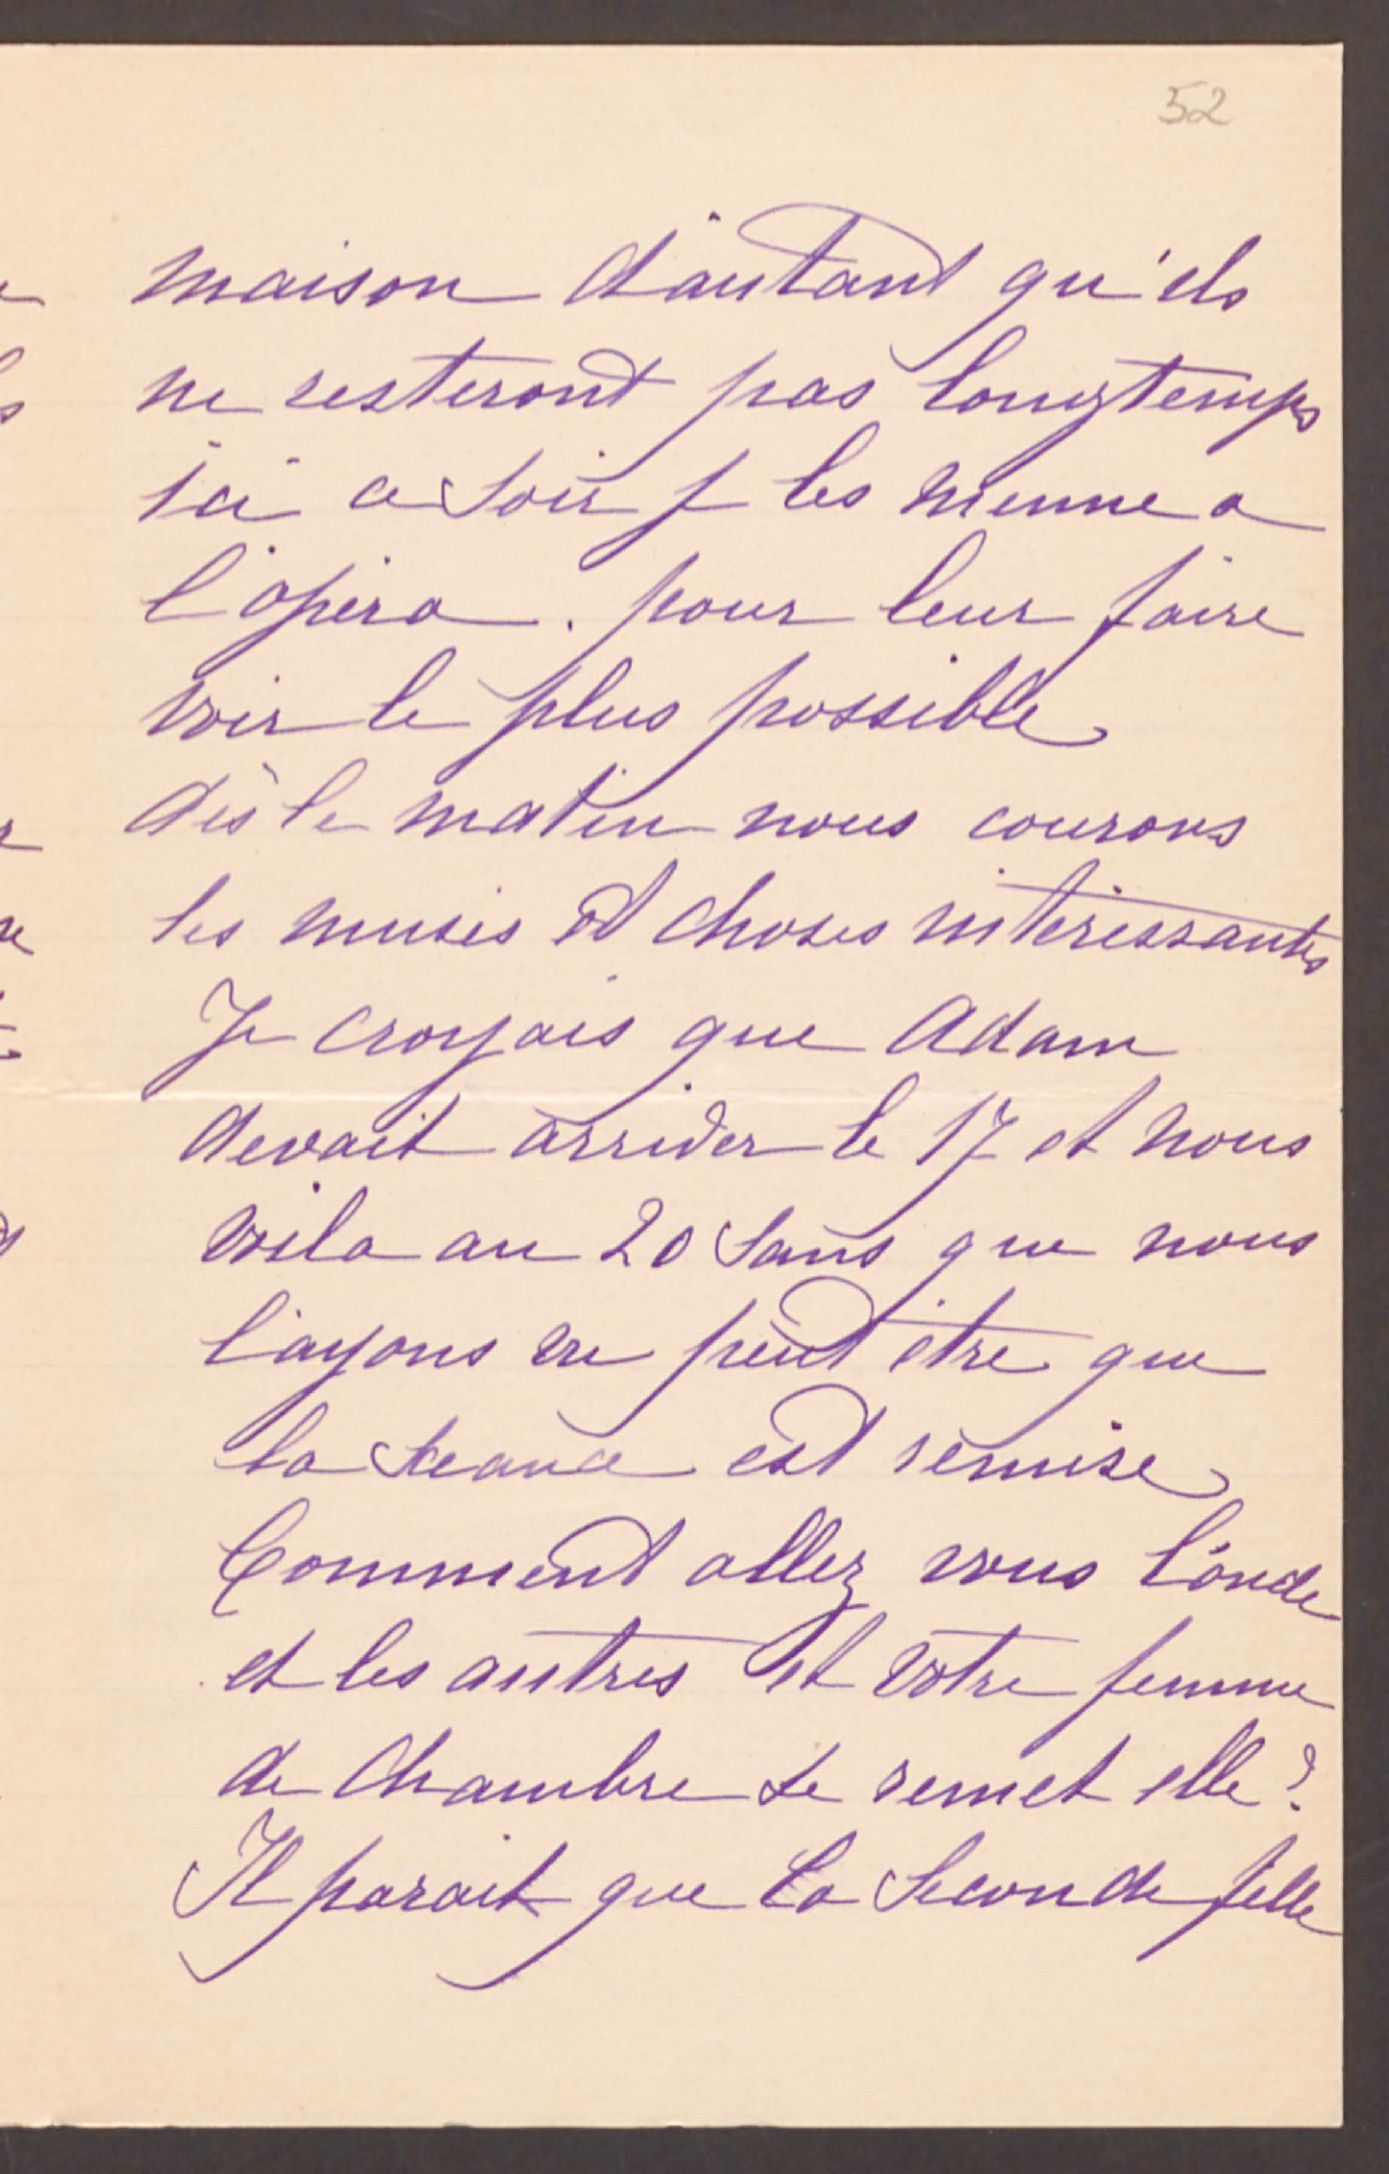 52
maison d'autant qu'ils
ne resteront pas longtemps
ici ce soir j les menne a
l'opera. pour leur faire
voir le plus possible
dès le matin nous courons
les musés et choses intéressantes
Je croyais que Adam
devait arriver le 17 et nous
voila au 20 sans que nous
l'ayons vu peut être que
la sceance est remise
Comment allez vous l'oncle
et les autres et votre femme
de chambre se remet elle?
Il parait que la seconde fille